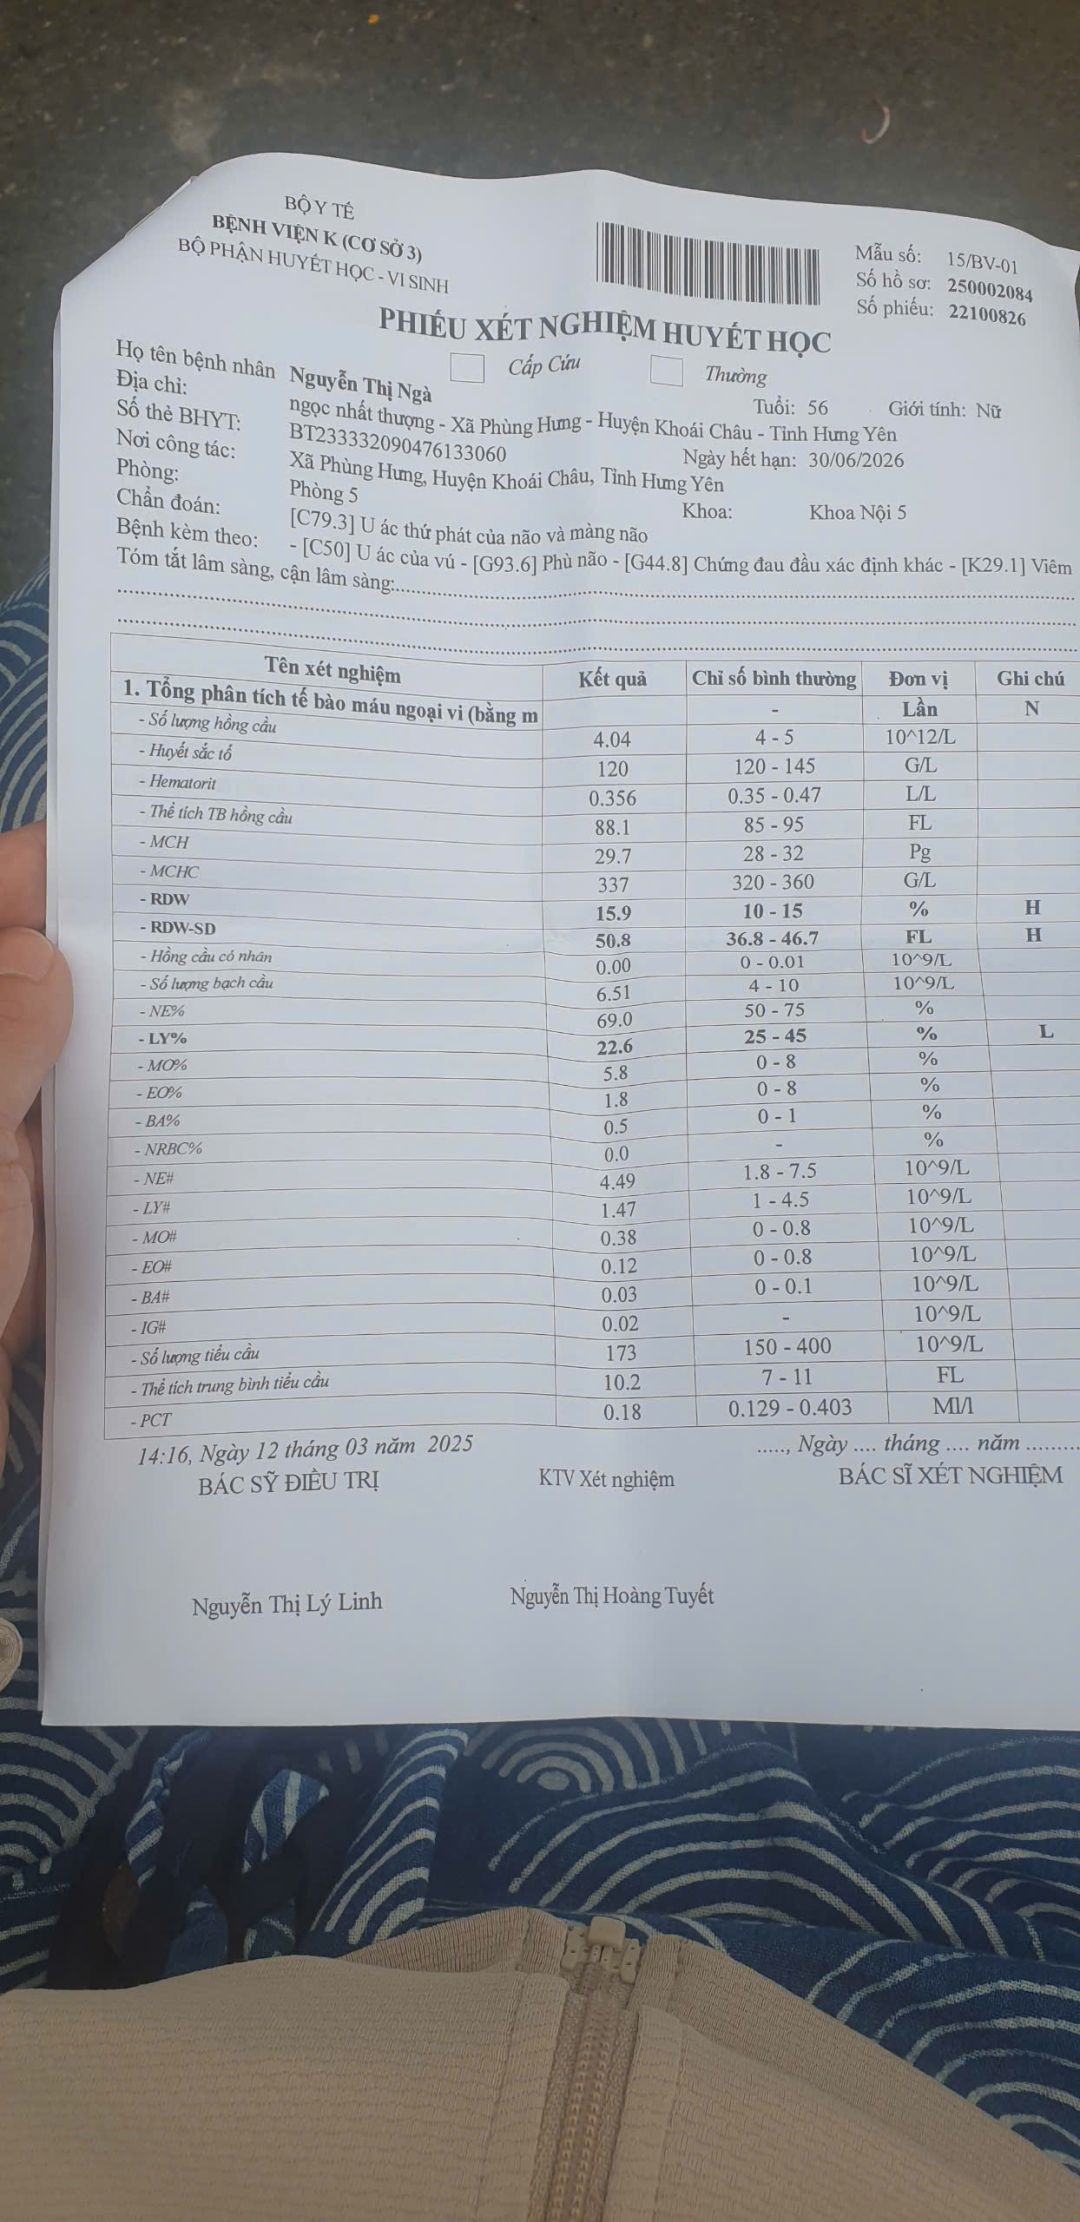 BỘ Y TẾ
BỆNH VIỆN K (CƠ SỞ 3)
BỘ PHẬN HUYẾT HỌC - VI SINH
Mẫu số: 15/BV-01
Số hồ sơ: 250002084
Số phiếu: 22100826
PHIẾU XÉT NGHIỆM HUYẾT HỌC
Cấp Cứu Thường
Họ tên bệnh nhân Nguyễn Thị Ngà Tuổi: 56 Giới tính: Nữ
Địa chỉ: ngọc nhất thượng - Xã Phùng Hưng - Huyện Khoái Châu - Tỉnh Hưng Yên
Số thẻ BHYT: BT2333320904761 33060 Ngày hết hạn: 30/06/2026
Nơi công tác: Xã Phùng Hưng, Huyện Khoái Châu, Tỉnh Hưng Yên
Phòng: Phòng 5 Khoa: Khoa Nội 5
Chẩn đoán: [C79.3] U ác thứ phát của não và màng não
Bệnh kèm theo: - [C50] U ác của vú - [G93.6] Phù não - [G44.8] Chứng đau đầu xác định khác - [K29.1] Viêm
Tóm tắt lâm sàng, cận lâm sàng:
Tên xét nghiệm Kết quả Chỉ số bình thường Đơn vị Ghi chú
1. Tổng phân tích tế bào máu ngoại vi (bằng m - Lần N
- Số lượng hồng cầu 4.04 4 - 5 10^12/L
- Huyết sắc tố 120 120 - 145 G/L
- Hematorit 0.356 0.35 - 0.47 L/L
- Thể tích TB hồng cầu 88.1 85 - 95 FL
- MCH 29.7 28 - 32 Pg
- MCHC 337 320 - 360 G/L
- RDW 15.9 10 - 15 % H
- RDW-SD 50.8 36.8 - 46.7 FL H
- Hồng cầu có nhân 0.00 0 - 0.01 10^9/L
- Số lượng bạch cầu 6.51 4 - 10 10^9/L
- NE% 69.0 50 - 75 %
- LY% 22.6 25 - 45 % L
- MO% 5.8 0 - 8 %
- EO% 1.8 0 - 8 %
- BA% 0.5 0 - 1 %
- NRBC% 0.0 - %
- NE# 4.49 1.8 - 7.5 10^9/L
- LY# 1.47 1 - 4.5 10^9/L
- MO# 0.38 0 - 0.8 10^9/L
- EO# 0.12 0 - 0.8 10^9/L
- BA# 0.03 0 - 0.1 10^9/L
- IG# 0.02 - 10^9/L
- Số lượng tiểu cầu 173 150 - 400 10^9/L
- Thể tích trung bình tiểu cầu 10.2 7 - 11 FL
- PCT 0.18 0.129 - 0.403 Ml/l
14:16, Ngày 12 tháng 03 năm 2025 ....., Ngày .... tháng .... năm .........
BÁC SỸ ĐIỀU TRỊ KTV Xét nghiệm BÁC SĨ XÉT NGHIỆM
Nguyễn Thị Lý Linh Nguyễn Thị Hoàng Tuyết